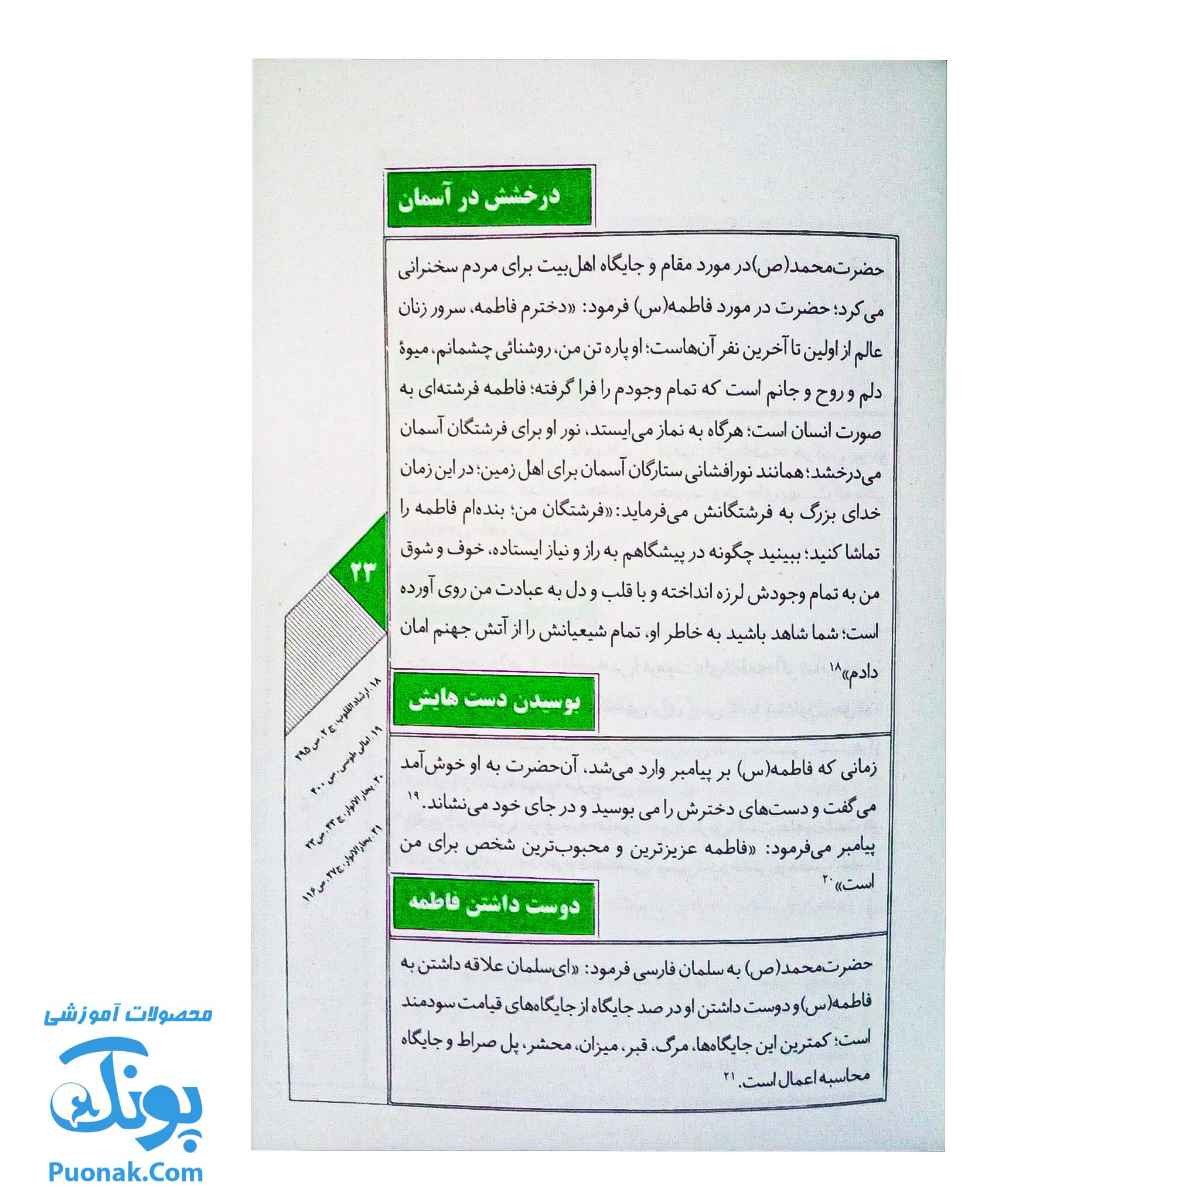 درخشش در آسمان
حضرت‌محمد(ص)در مورد مقام و جایگاه اهل‌بیت برای مردم سخنرانی
می‌کرد؛ حضرت در مورد فاطمه(س) فرمود: «دخترم فاطمه، سرور زنان
عالم از اولین تا آخرین نفر آن‌هاست؛ او پاره تن من، روشنائی چشمانم، میوۀ
دلم و روح و جانم است که تمام وجودم را فرا گرفته؛ فاطمه فرشته‌ای به
صورت انسان است؛ هرگاه به نماز می‌ایستد، نور او برای فرشتگان آسمان
می‌درخشد؛ همانند نورافشانی ستارگان آسمان برای اهل زمین؛ در این زمان
خدای بزرگ به فرشتگانش می‌فرماید: «فرشتگان من؛ بنده‌ام فاطمه را
تماشا کنید؛ ببینید چگونه در پیشگاهم به راز و نیاز ایستاده، خوف و شوق
من به تمام وجودش لرزه انداخته و با قلب و دل به عبادت من روی آورده
است؛ شما شاهد باشید به خاطر او، تمام شیعیانش را از آتش جهنم امان
دادم»۱۸
بوسیدن دست هایش
زمانی که فاطمه(س) بر پیامبر وارد می‌شد، آن‌حضرت به او خوش‌آمد
می‌گفت و دست‌های دخترش را می بوسید و در جای خود می‌نشاند.۱۹
پیامبر می‌فرمود: «فاطمه عزیزترین و محبوب‌ترین شخص برای من
است»۲۰
دوست داشتن فاطمه
حضرت‌محمد(ص) به سلمان فارسی فرمود: «ای‌سلمان علاقه داشتن به
فاطمه(س)و دوست داشتن او در صد جایگاه از جایگاه‌های قیامت سودمند
است؛ کمترین این جایگاه‌ها، مرگ، قبر، میزان، محشر، پل صراط و جایگاه
محاسبه اعمال است.۲۱
۲۳
۱۸. ارشاد القلوب، ج ۲، ص ۲۹۵
۱۹. امالی طوسی، ص ۴۰۰
۲۰. بحار الانوار، ج ۴۳، ص ۲۳
۲۱. بحارالانوار، ج۲۷، ص۱۱۶
محصولات آموزشی
پونک
Puonak.Com